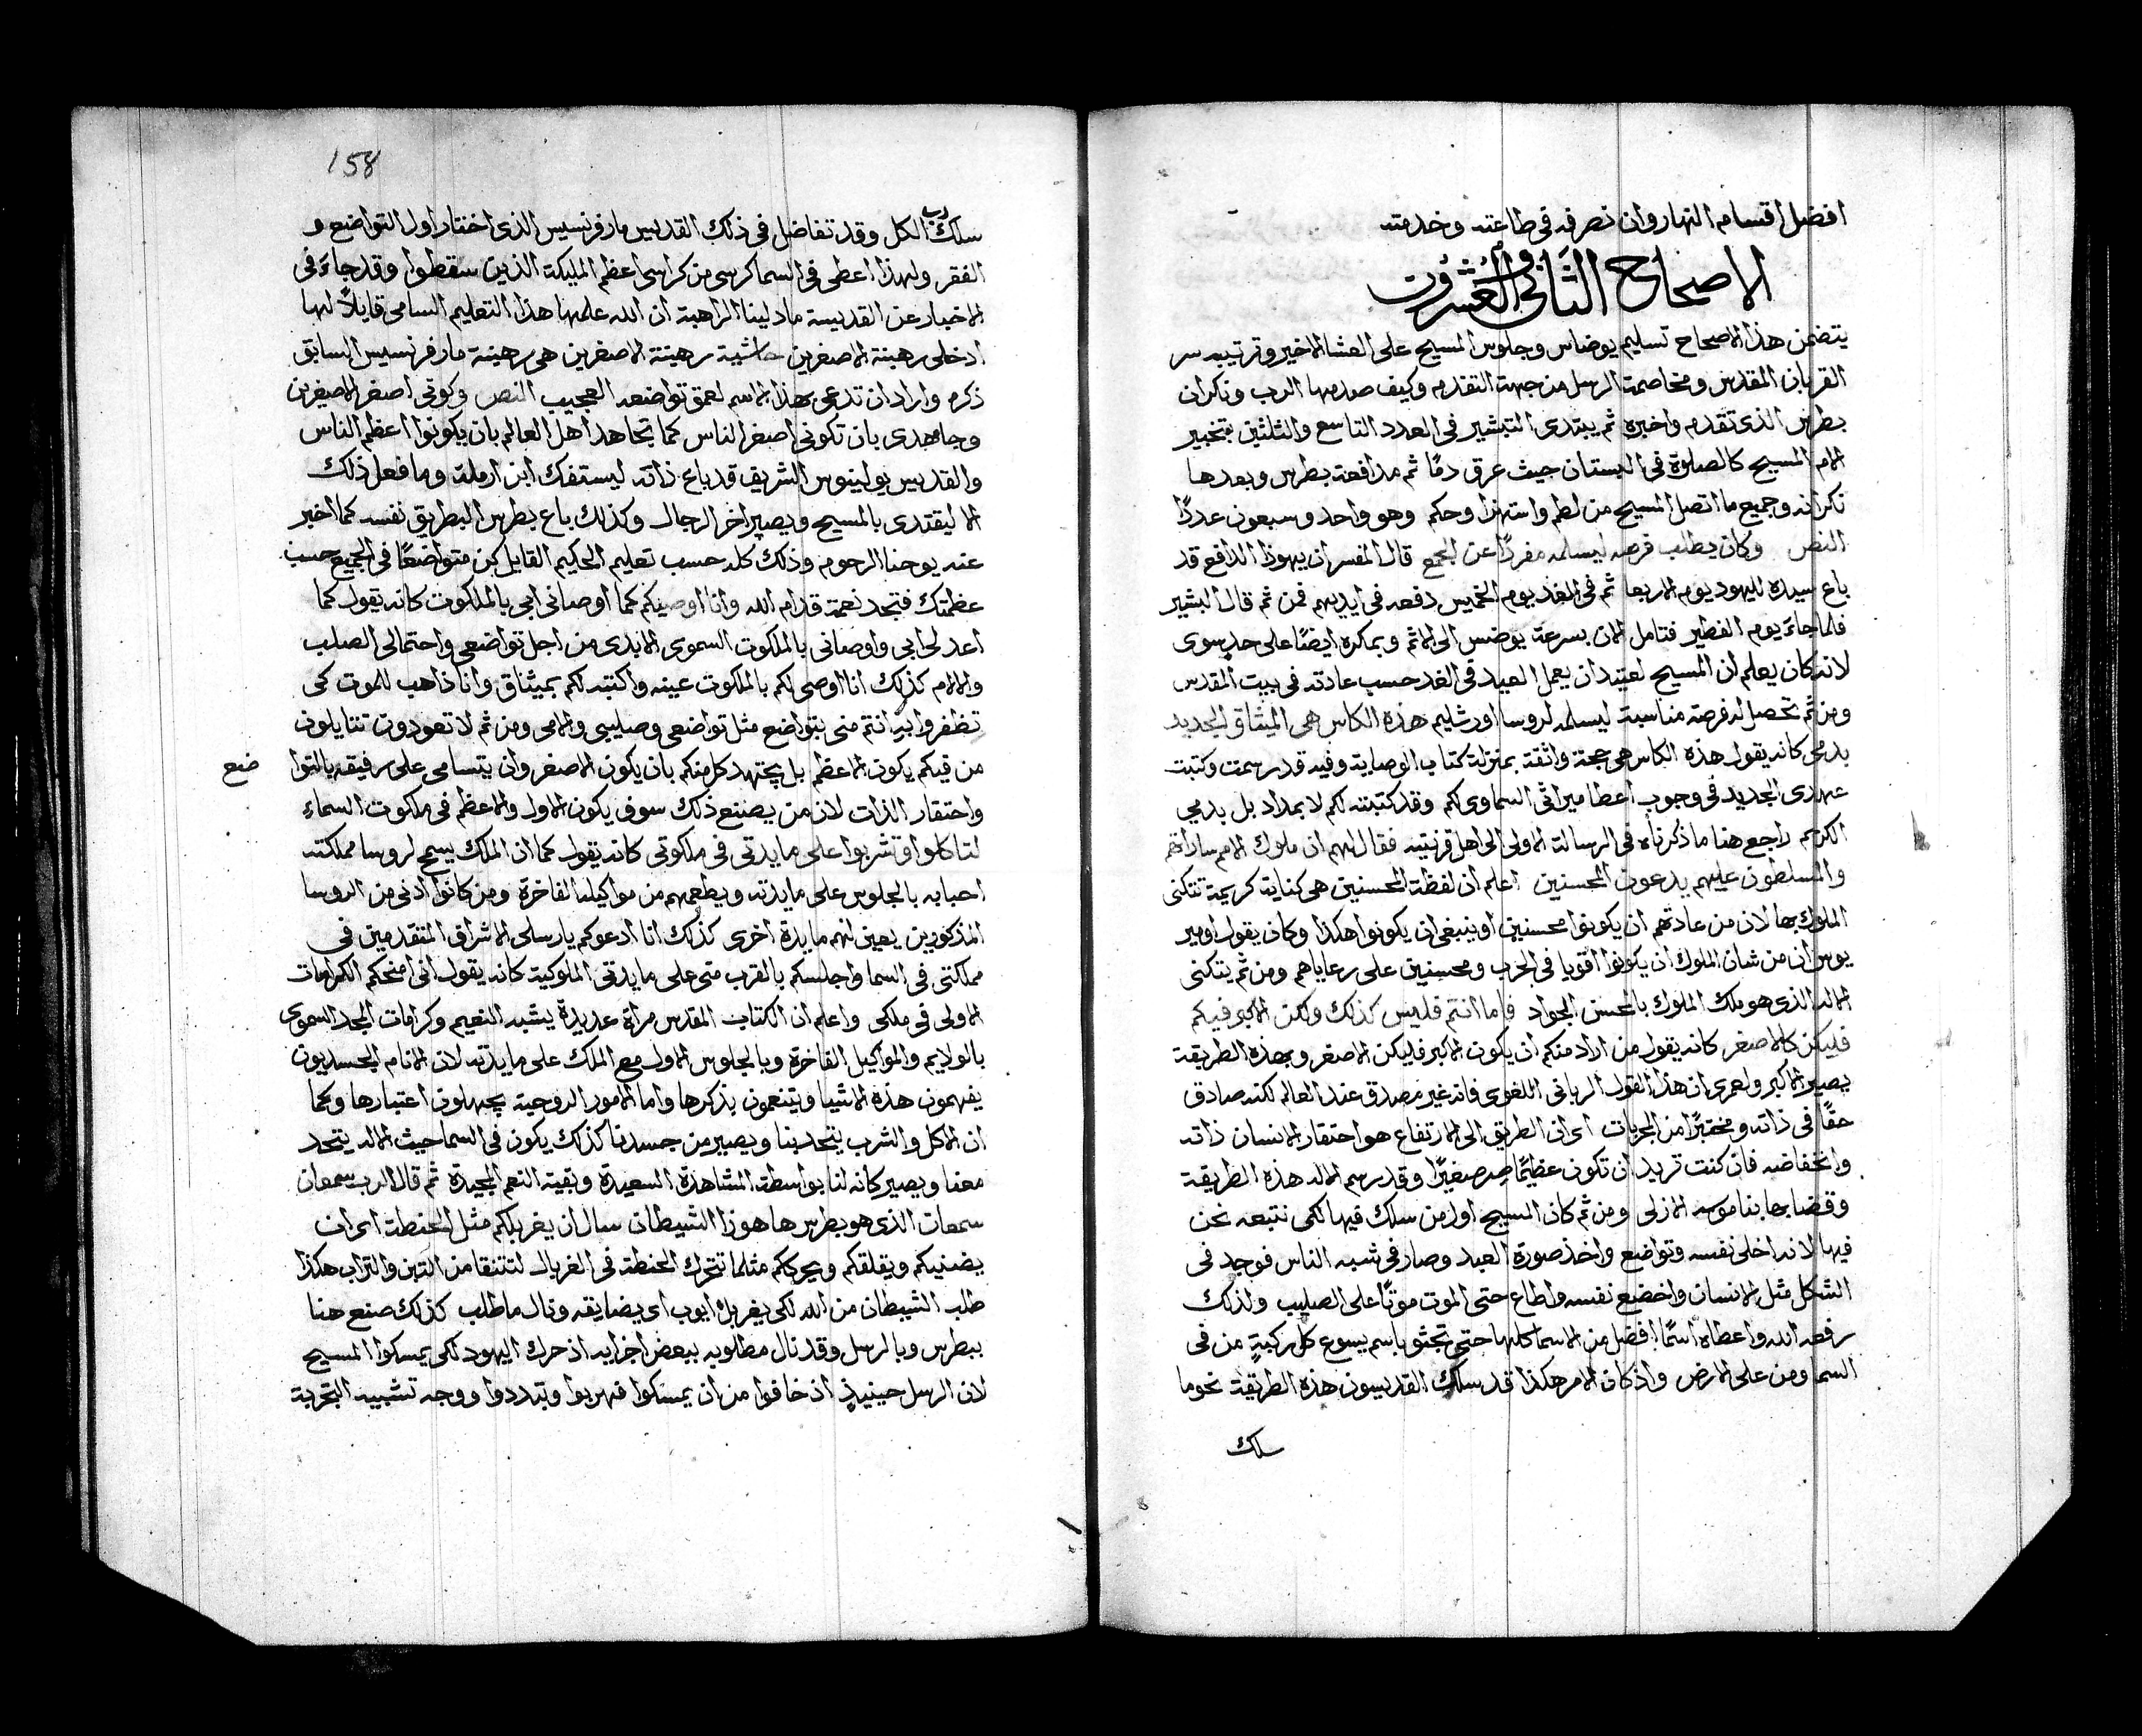 افضل اقسام النهار وان نصرفه في طاعته وخدمته
الاصحاح الثاني والعشرون
يتضمن هذا الاصحاح تسليم يوضاس وجلوس المسيح على العشا الاخير وترتيبه سر
القربان المقدس ومخاصمة الرسل من جهة التقدم وكيف صدمها الرب ونكران
بطرس الذي تقدم واخبره ثم يبتدي التبشير في العدد التاسع والثلثين بتخبير
الام المسيح كالصلوة في البستان حيث عرق دمًا ثم مدافعة بطرس وبعدها
نكرانه وجميع ما اتصل المسيح من لطم واستهزا وحكم وهو واحد وسبعون عددًا
النص وكان يطلب فرصه ليسلمه مفردًا عن الجمع قال المفسر ان يهوذا الدافع قد
باع سيده لليهود يوم الاربعا ثم في الغد يوم الخميس دفعه في ايديهم فمن ثم قال البشير
فلما جاء يوم الفطير فتامل الان بسرعة يوضس الى الاثم وبمكره ايضًا على حدٍ سوى
لانه كان يعلم ان المسيح لعتيد ان يعمل العيد في الغد حسب عادته في بيت المقدس
ومن ثم تحصل له فرصه مناسبة ليسلمه لروسا اورشليم هذه الكاس هي الميثاق الجديد
بدمي كانه يقول هذه الكاس هي حجة واثقة بمنزلة كتاب الوصاية وفيه قد رسمت وكتبت
عهدي الجديد في وجوب اعطا ميراثي السماوي لكم وقد كتبته لكم لا بمداد بل بدمي
الكريم راجع هنا ما ذكرناه في الرسالة الاولى الى اهل قرنتيه فقال لهم ان ملوك الامم ساداتهم
والمسلطون عليهم يدعون المحسنين اعلم ان لفظة المحسنين هي كناية كريمة تتكنى
الملوك بها لان من عادتهم ان يكونوا محسنين او ينبغي ان يكونوا هكذا وكان يقول اومير
يوس ان من شان الملوك ان يكونوا اقويا في الحرب ومحسنين على رعاياهم ومن ثم يتكنى
الاله الذي هو ملك الملوك بالمحسن الجواد واما انتم فليس كذلك ولكن الاكبر فيكم
فليكن كالاصغر كانه يقول من اراد منكم ان يكون الاكبر فليكن الاصغر وبهذه الطريقة
يصير الاكبر ولعمري ان هذا القول الرباني اللغوي فانه غير مصدق عند العالم لكنه صادق
حقًا في ذاته ومختبرًا من الجربات اي ان الطريق الى الارتفاع هو احتقار الانسان ذاته
وانخفاضه فان كنت تريد ان تكون عظيمًا صِر صغيرًا وقد رسم الاله هذه الطريقة
وقضا بها بناموسه الازلي ومن ثم كان المسيح اول من سلك فيها لكي نتبعه نحن
فيها لانه اخلى نفسه وتواضع واخذ صورة العبد وصار في شبه الناس فوجد في
الشكل مثل الانسان واخضع نفسه واطاع حتى الموت موتًا على الصليب ولذلك
رفعه الله واعطاه اسمًا افضل من الاسما كلها حتى تجثو باسم يسوع كل ركبةٍ من في
السما ومن على الارض واذ كان الامر هكذا قد سلك القديسون هذه الطريقة نحوما
سلك
158
سلك رب الكل وقد تفاضل في ذلك القديس مار فرنسيس الذي اختار اول التواضع و
الفقر ولهذا اعطى في السما كرسي من كراسي اعظم المليكة الذين سقطوا وقد جاء في
الاخبار عن القديسة مادلينا الراهبة ان الله علمها هذا التعليم السامي قايلاً لها
ادخلي رهبنة الاصغرين حاشية رهبنة الاصغرين هي رهبنة مار فرنسيس السابق
ذكره واراد ان تدعى بهذا الاسم لعمق تواضعه العجيب النص وكوني اصغر الاصغرين
وجاهدي بان تكوني اصغر الناس كما تجاهد اهل العالم بان يكونوا اعظم الناس
والقديس بولينوس الشريف قد باع ذاته ليستفك ابن ارملة وما فعل ذلك
الا ليقتدي بالمسيح ويصير اخر الرجال وكذلك باع بطرس البطريق نفسه كما اخبر
عنه يوحنا الرحوم وذلك كله حسب تعليم الحكيم القايل كن متواضعًا في الجميع حسب
عظمتك فتجد نعمة قدام الله وانا اوصيكم كما اوصاني ابي بالملكوت كانه يقول كما
اعد لي ابي واوصاني بالملكوت السموي الابدي من اجل تواضعي واحتمالي الصلب
والالام كذلك انا اوصي لكم بالملكوت عينه واكتبه لكم بميثاق وانا ذاهب للموت كي
تظفروا به انتم مني بتواضع مثل تواضعي وصليبي والامي ومن ثم لا تعودون تتنايلون
من فيكم يكون الاعظم بل يجتهد كل منكم بان يكون الاصغر وان يتسامى على رفيقه بالتوا
ضع
واحتقار الذات لان من يصنع ذلك سوف يكون الاول والاعظم في ملكوت السماء
لتاكلوا وتشربوا على مايدتي في ملكوتي كانه يقول كما ان الملك يسمح لروسا مملكته
احبابه بالجلوس على مايدته ويطعمهم من مواكيله الفاخرة ومن كانوا ادنى من الروسا
المذكورين يعين لهم مايدة اخرى كذلك انا ادعوكم يا رسلي الاشراف المتقدمين في
مملكتي في السما واجلسكم بالقرب مني على مايدتي الملوكية كانه يقول اني امنحكم الكرامات
الاولى في ملكي واعلم ان الكتاب المقدس مرات عديدة يشبه النعيم وكرامات المجد السموي
بالولايم والمواكيل الفاخرة وبالجلوس الاول مع الملك على مايدته لان الانام الجسديون
يفهمون هذه الاشيا ويتنعمون بذكرها واما الامور الروحية يجهلون اعتبارها وكما
ان الاكل والشرب يتحد بنا ويصير من جسدنا كذلك يكون في السما حيث الاله يتحد
معنا ويصير كانه لنا بواسطة المشاهدة السعيدة وبقية النعم المجيدة ثم قال الرب سمعان
سمعان الذي هو بطرس ها هوذا الشيطان سال ان يغربلكم مثل الحنطة اي ان
يضنيكم ويقلقكم ويحرككم مثلما تتحرك الحنطة في الغربال لتتنقا من التبن والتراب هكذا
طلب الشيطان من الله لكي يغربل ايوب اي يضايقه ونال ما طلب كذلك صنع هنا
ببطرس وبالرسل وقد نال مطلوبه ببعض اجزايه اذ حرك اليهود لكي يمسكوا المسيح
لان الرسل حينيذٍ اذ خافوا من ان يمسكوا فهربوا وتبددوا ووجه تشبيه التجربة